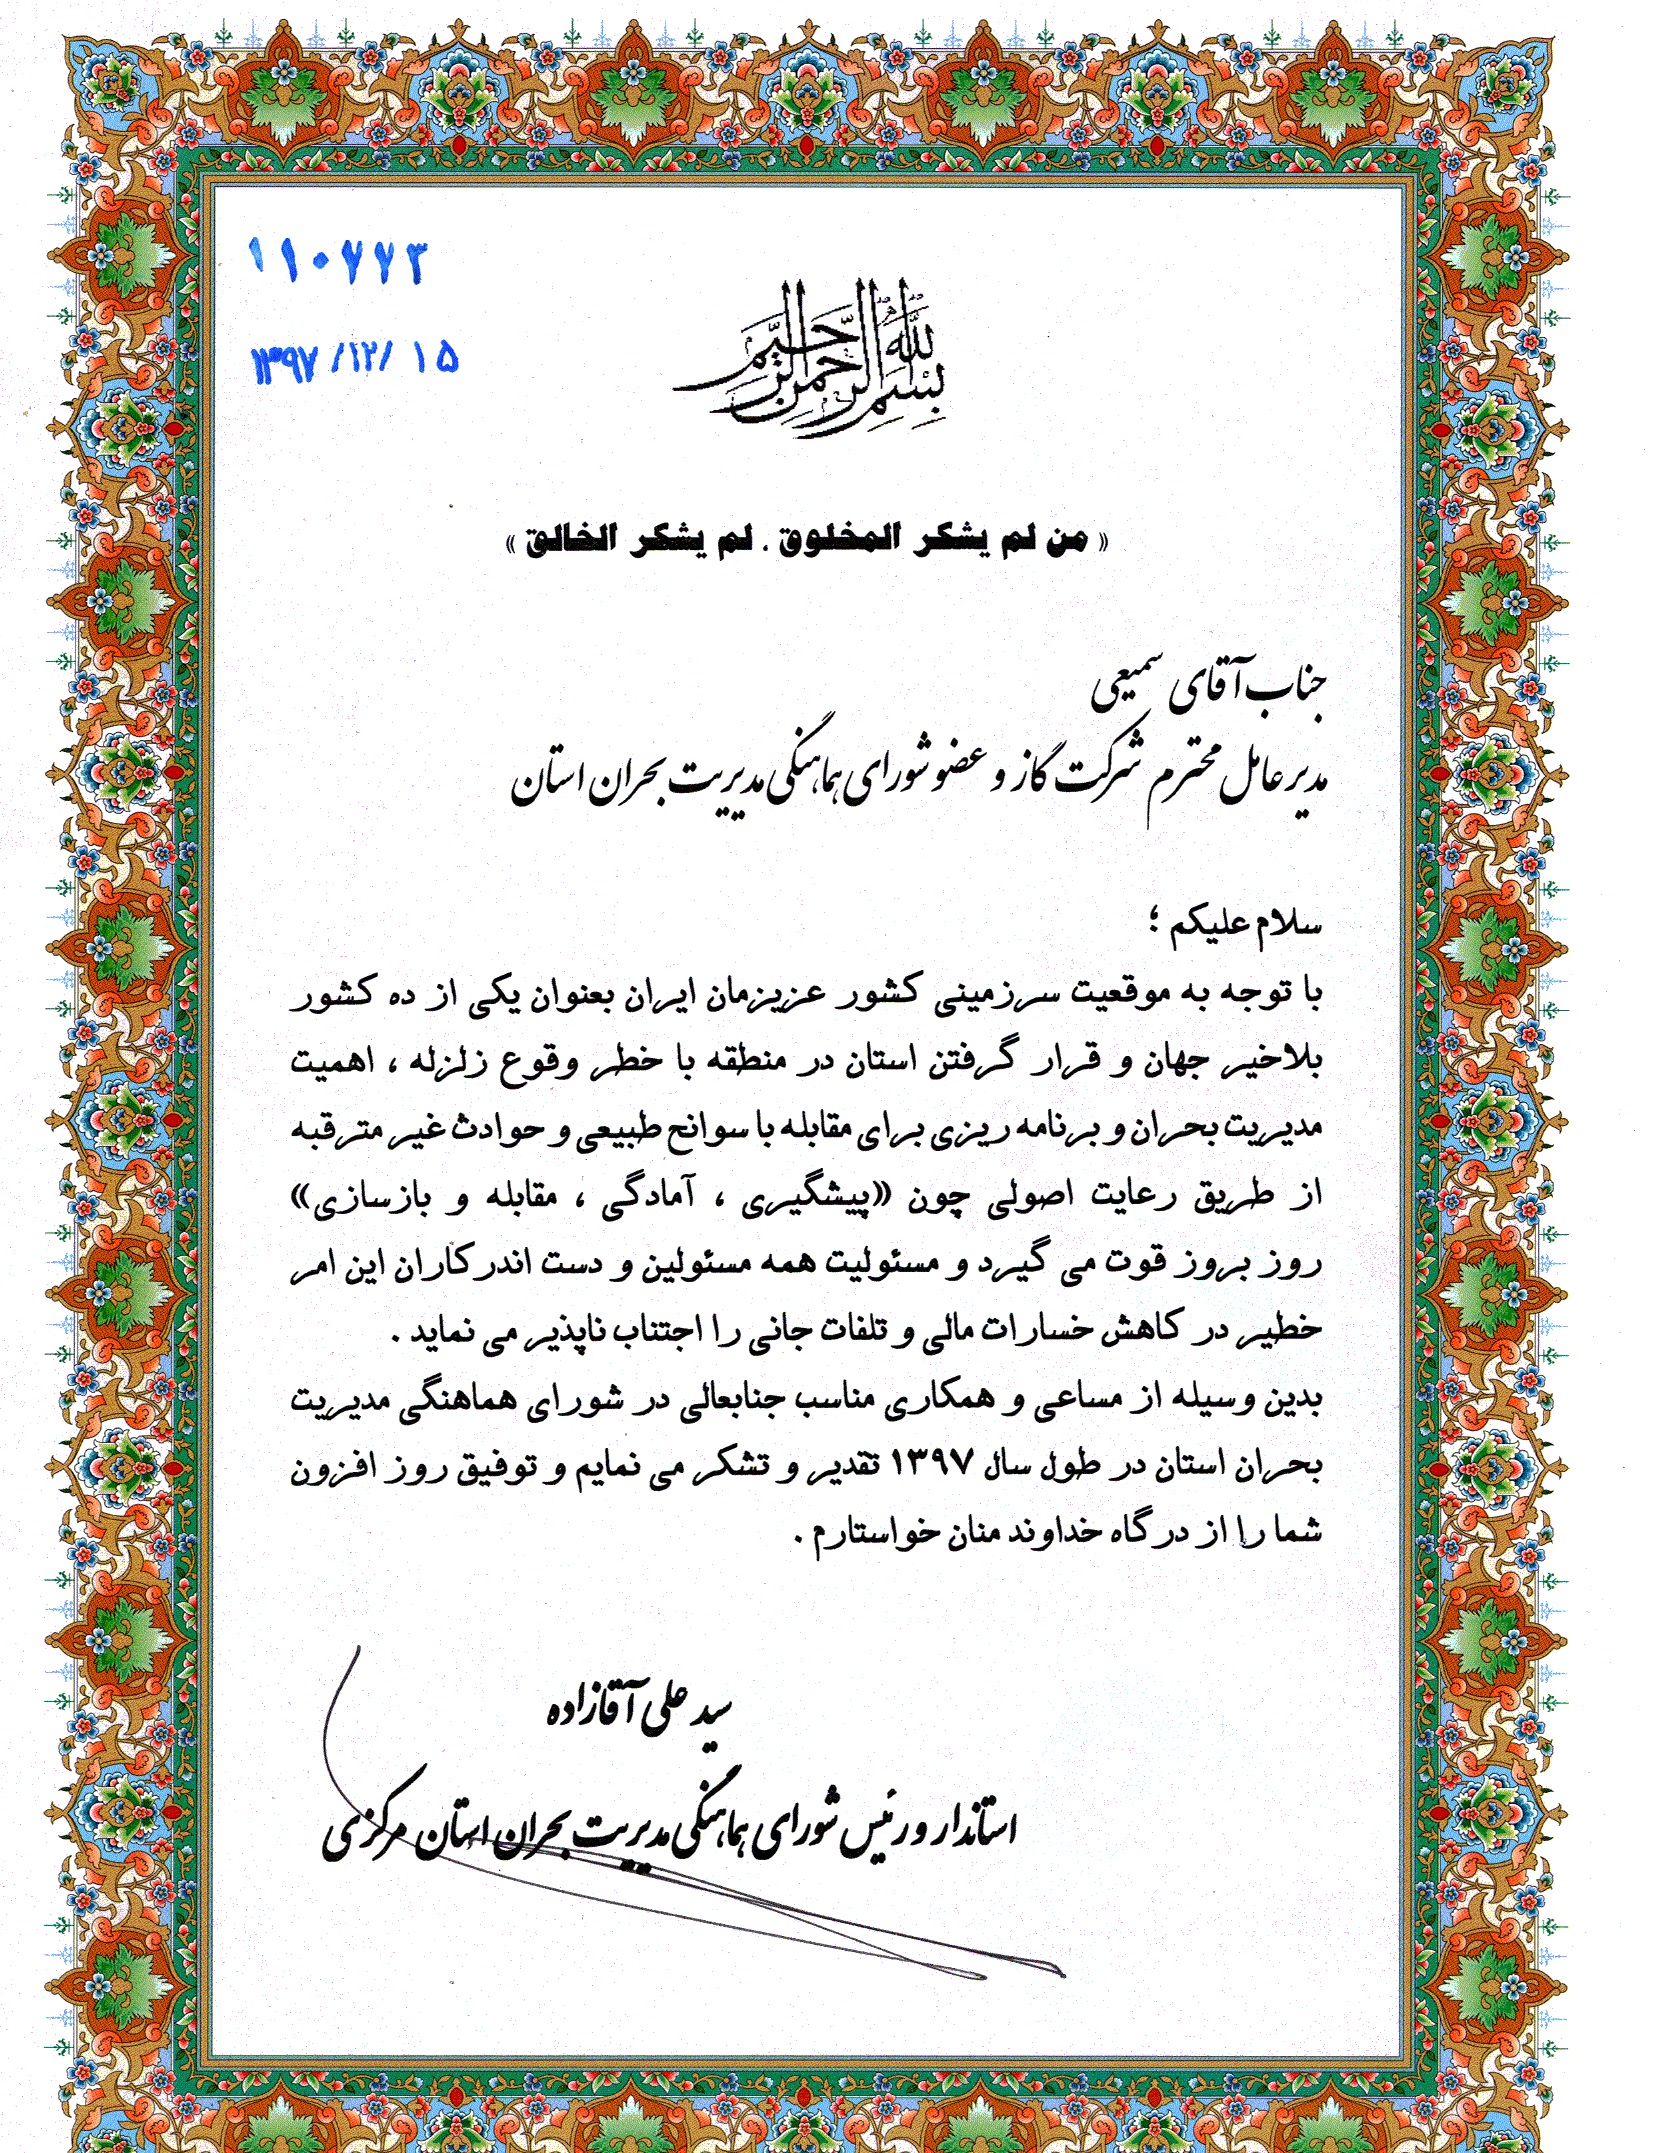 ۱۱۰۷۷۳
۱۳۹۷/۱۲/۱۵
بسم الله الرحمن الرحیم
« من لم یشکر المخلوق . لم یشکر الخالق »
جناب آقای سمیعی
مدیرعامل محترم شرکت گاز و عضو شورای هماهنگی مدیریت بحران استان
سلام علیکم ؛
با توجه به موقعیت سرزمینی کشور عزیزمان ایران بعنوان یکی از ده کشور
بلاخیر جهان و قرار گرفتن استان در منطقه با خطر وقوع زلزله ، اهمیت
مدیریت بحران و برنامه ریزی برای مقابله با سوانح طبیعی و حوادث غیر مترقبه
از طریق رعایت اصولی چون «پیشگیری ، آمادگی ، مقابله و بازسازی»
روز بروز قوت می گیرد و مسئولیت همه مسئولین و دست اندرکاران این امر
خطیر در کاهش خسارات مالی و تلفات جانی را اجتناب ناپذیر می نماید .
بدین وسیله از مساعی و همکاری مناسب جنابعالی در شورای هماهنگی مدیریت
بحران استان در طول سال ۱۳۹۷ تقدیر و تشکر می نمایم و توفیق روز افزون
شما را از درگاه خداوند منان خواستارم .
سید علی آقازاده
استاندار و رئیس شورای هماهنگی مدیریت بحران استان مرکزی